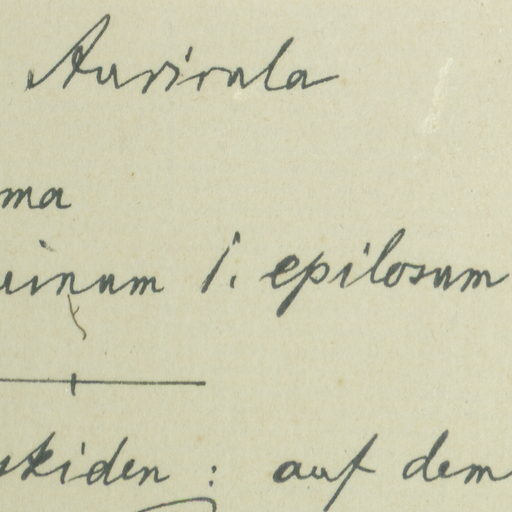 Auricula
ma
inum f. epilosum
skiden : auf dem